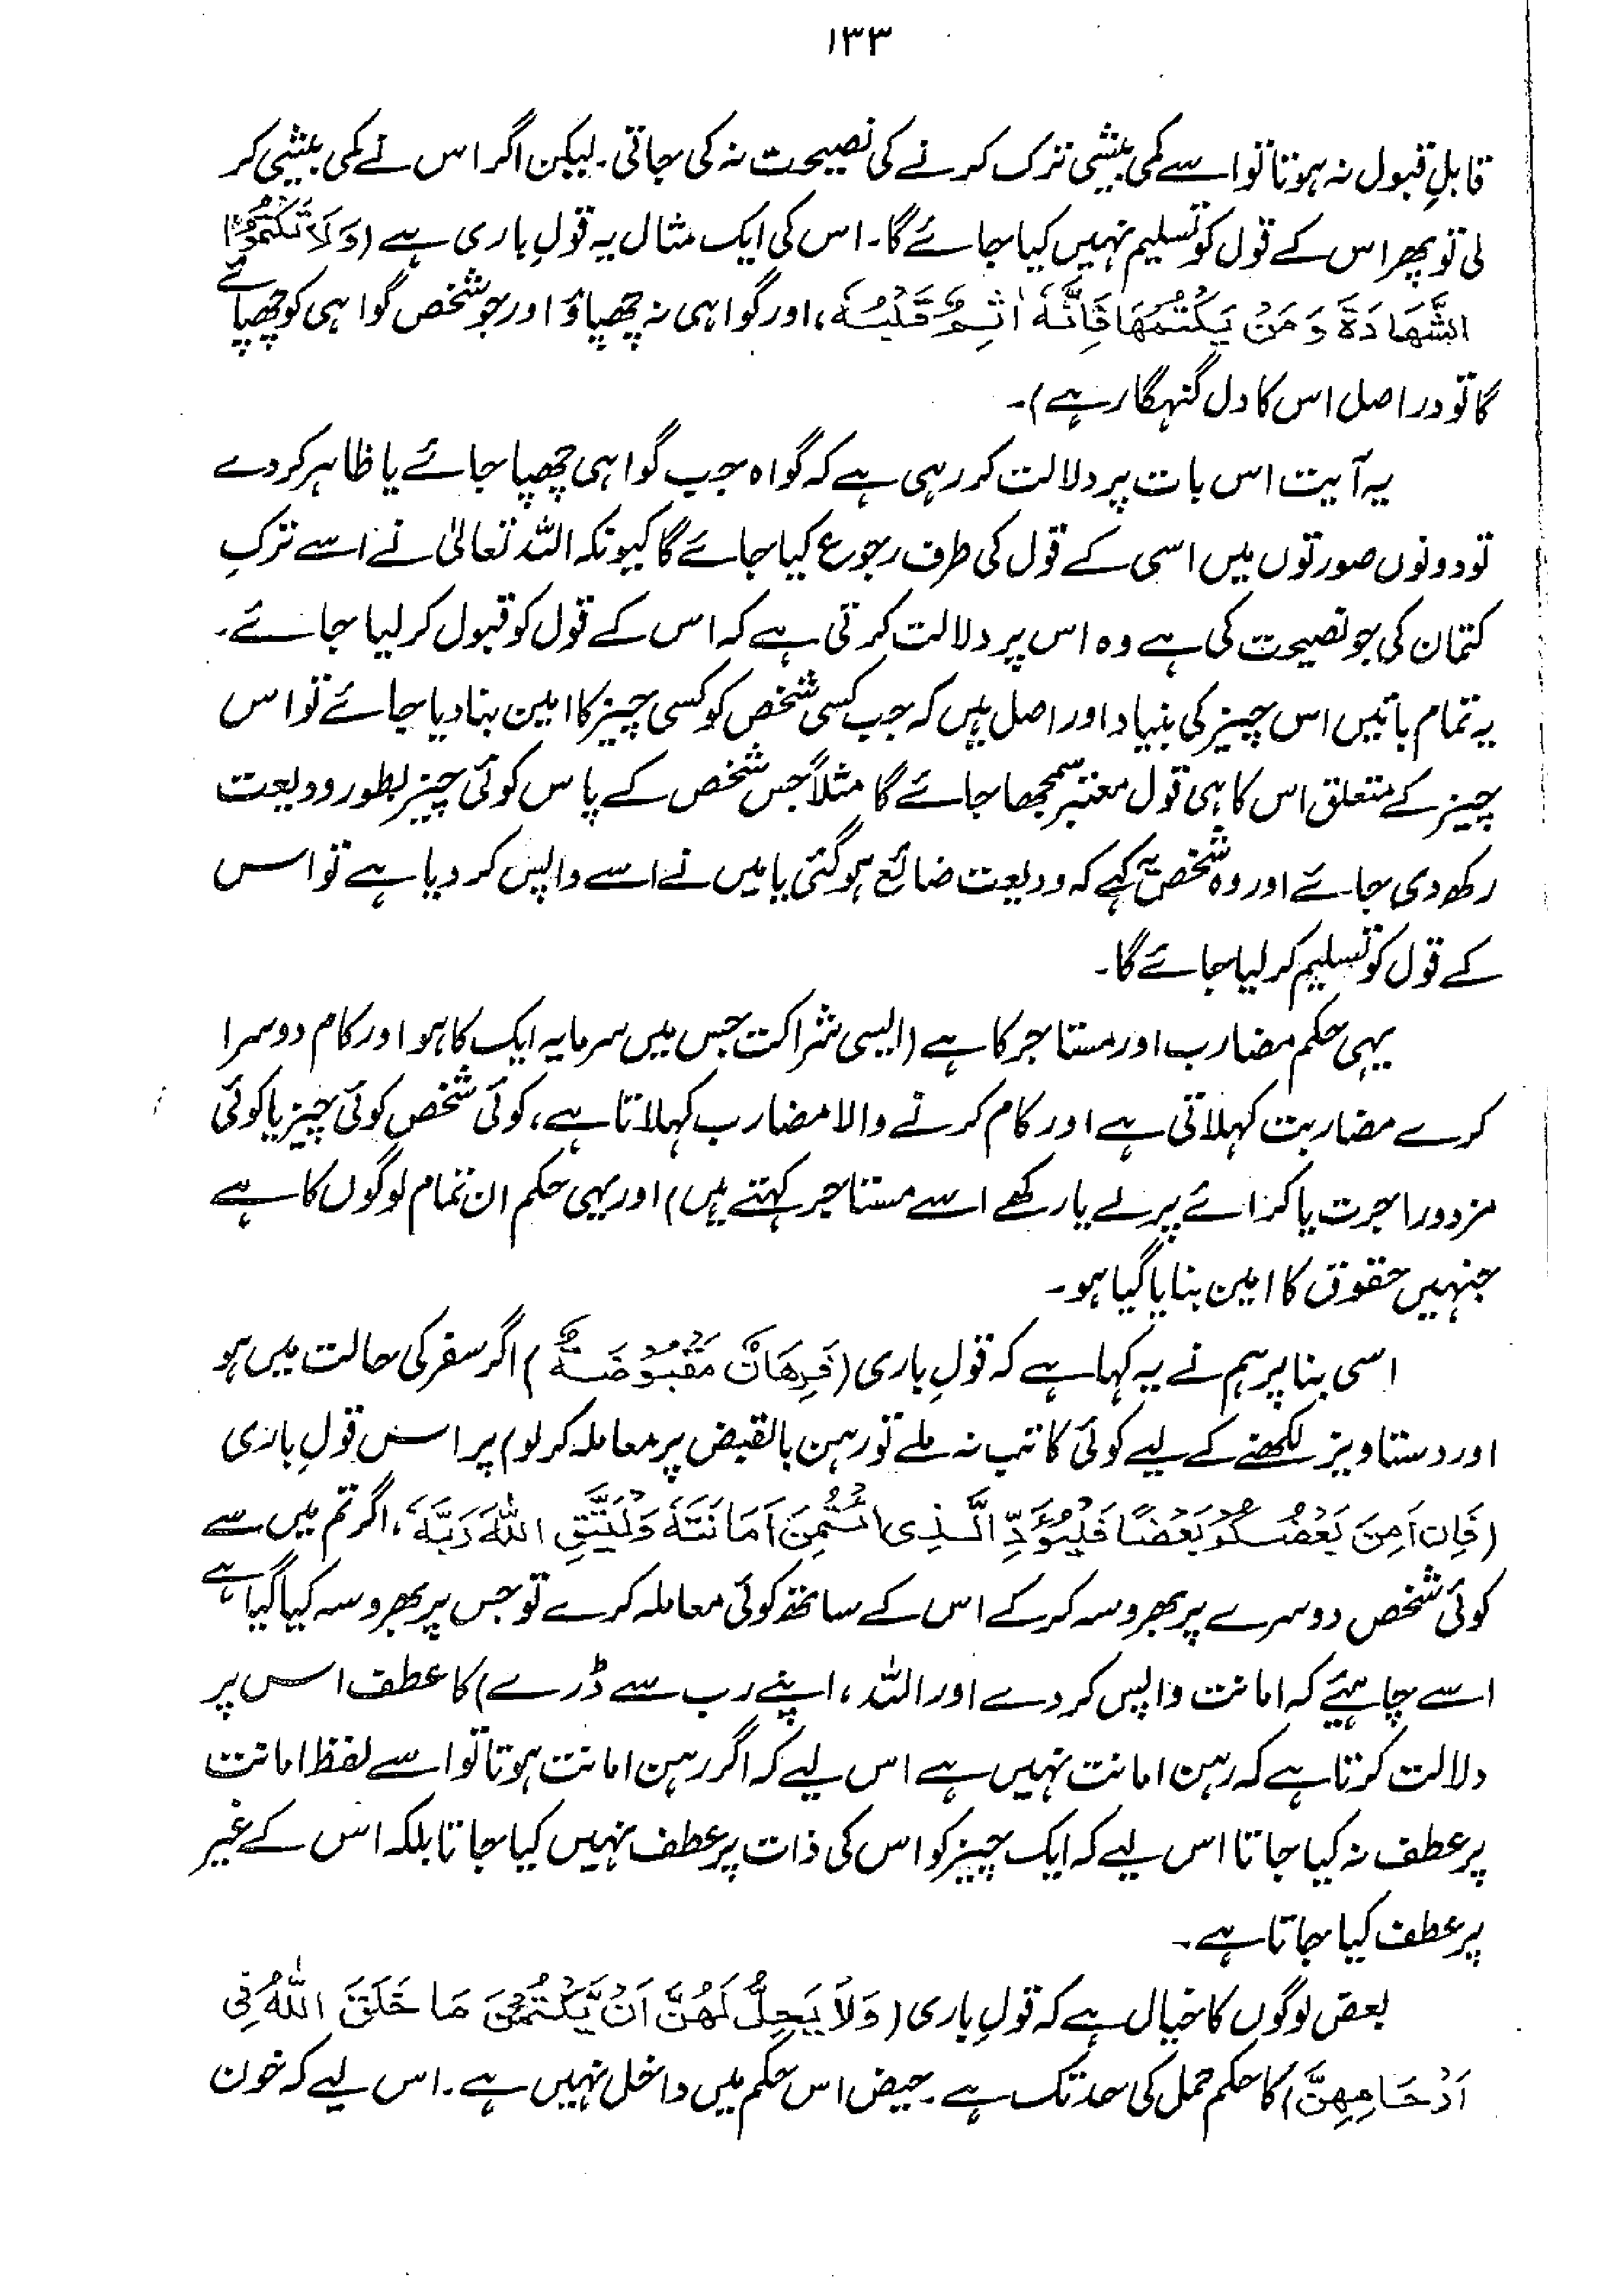 ۱۳۳
قابلِ قبول نہ ہوتا تو اسے کمی بیشی ترک کرنے کی نصیحت نہ کی جاتی۔ لیکن اگر اس نے کمی بیشی کر
لی تو پھر اس کے قول کو تسلیم نہیں کیا جائے گا۔ اس کی ایک مثال یہ قولِ باری ہے (وَلَا تَكْتُمُوا
الشَّهَادَةَ وَمَنْ يَكْتُمْهَا فَإِنَّهٗ اٰثِمٌ قَلْبُهٗ، اور گواہی نہ چھپاؤ اور جو شخص گواہی کو چھپائے
گا تو دراصل اس کا دل گنہگار ہے)۔
یہ آیت اس بات پر دلالت کر رہی ہے کہ گواہ جب گواہی چھپا جائے یا ظاہر کر دے
تو دونوں صورتوں میں اسی کے قول کی طرف رجوع کیا جائے گا کیونکہ اللہ تعالیٰ نے اسے ترکِ
کتمان کی جو نصیحت کی ہے وہ اس پر دلالت کرتی ہے کہ اس کے قول کو قبول کر لیا جائے۔
یہ تمام باتیں اس چیز کی بنیاد اور اصل ہیں کہ جب کسی شخص کو کسی چیز کا امین بنا دیا جائے تو اس
چیز کے متعلق اس کا ہی قول معتبر سمجھا جائے گا مثلاً جس شخص کے پاس کوئی چیز بطور ودیعت
رکھ دی جائے اور وہ شخص یہ کہے کہ ودیعت ضائع ہو گئی یا میں نے اسے واپس کر دیا ہے تو اس
کے قول کو تسلیم کر لیا جائے گا۔
یہی حکم مضارب اور مستاجر کا ہے (ایسی شراکت جس میں سرمایہ ایک کا ہو اور کام دوسرا
کرے مضاربت کہلاتی ہے اور کام کرنے والا مضارب کہلاتا ہے، کوئی شخص کوئی چیز یا کوئی
مزدور اجرت یا کرائے پر لے یا رکھے اسے مستاجر کہتے ہیں) اور یہی حکم ان تمام لوگوں کا ہے
جنہیں حقوق کا امین بنایا گیا ہو۔
اسی بنا پر ہم نے یہ کہا ہے کہ قولِ باری (فَرِهَانٌ مَقْبُوْضَةٌ) اگر سفر کی حالت میں ہو
اور دستاویز لکھنے کے لیے کوئی کاتب نہ ملے تو رہن بالقبض پر معاملہ کر لو) پر اس قولِ باری
(فَاِنْ اَمِنَ بَعْضُكُمْ بَعْضًا فَلْيُؤَدِّ الَّذِى ائْتُمِنَ اَمَانَتَهٗ وَلْيَتَّقِ اللّٰهَ رَبَّهٗ، اگر تم میں سے
کوئی شخص دوسرے پر بھروسہ کر کے اس کے ساتھ کوئی معاملہ کرے تو جس پر بھروسہ کیا گیا ہے
اسے چاہیئے کہ امانت واپس کر دے اور اللہ، اپنے رب سے ڈرے) کا عطف اس پر
دلالت کرتا ہے کہ رہن امانت نہیں ہے اس لیے کہ اگر رہن امانت ہوتا تو اسے لفظ امانت
پر عطف نہ کیا جاتا اس لیے کہ ایک چیز کو اس کی ذات پر عطف نہیں کیا جاتا بلکہ اس کے غیر
پر عطف کیا جاتا ہے۔
بعض لوگوں کا خیال ہے کہ قولِ باری (وَلَا يَحِلُّ لَهُنَّ اَنْ يَّكْتُمْنَ مَا خَلَقَ اللّٰهُ فِى
اَرْحَامِهِنَّ) کا حکم حمل کی حد تک ہے۔ حیض اس حکم میں داخل نہیں ہے۔ اس لیے کہ خون